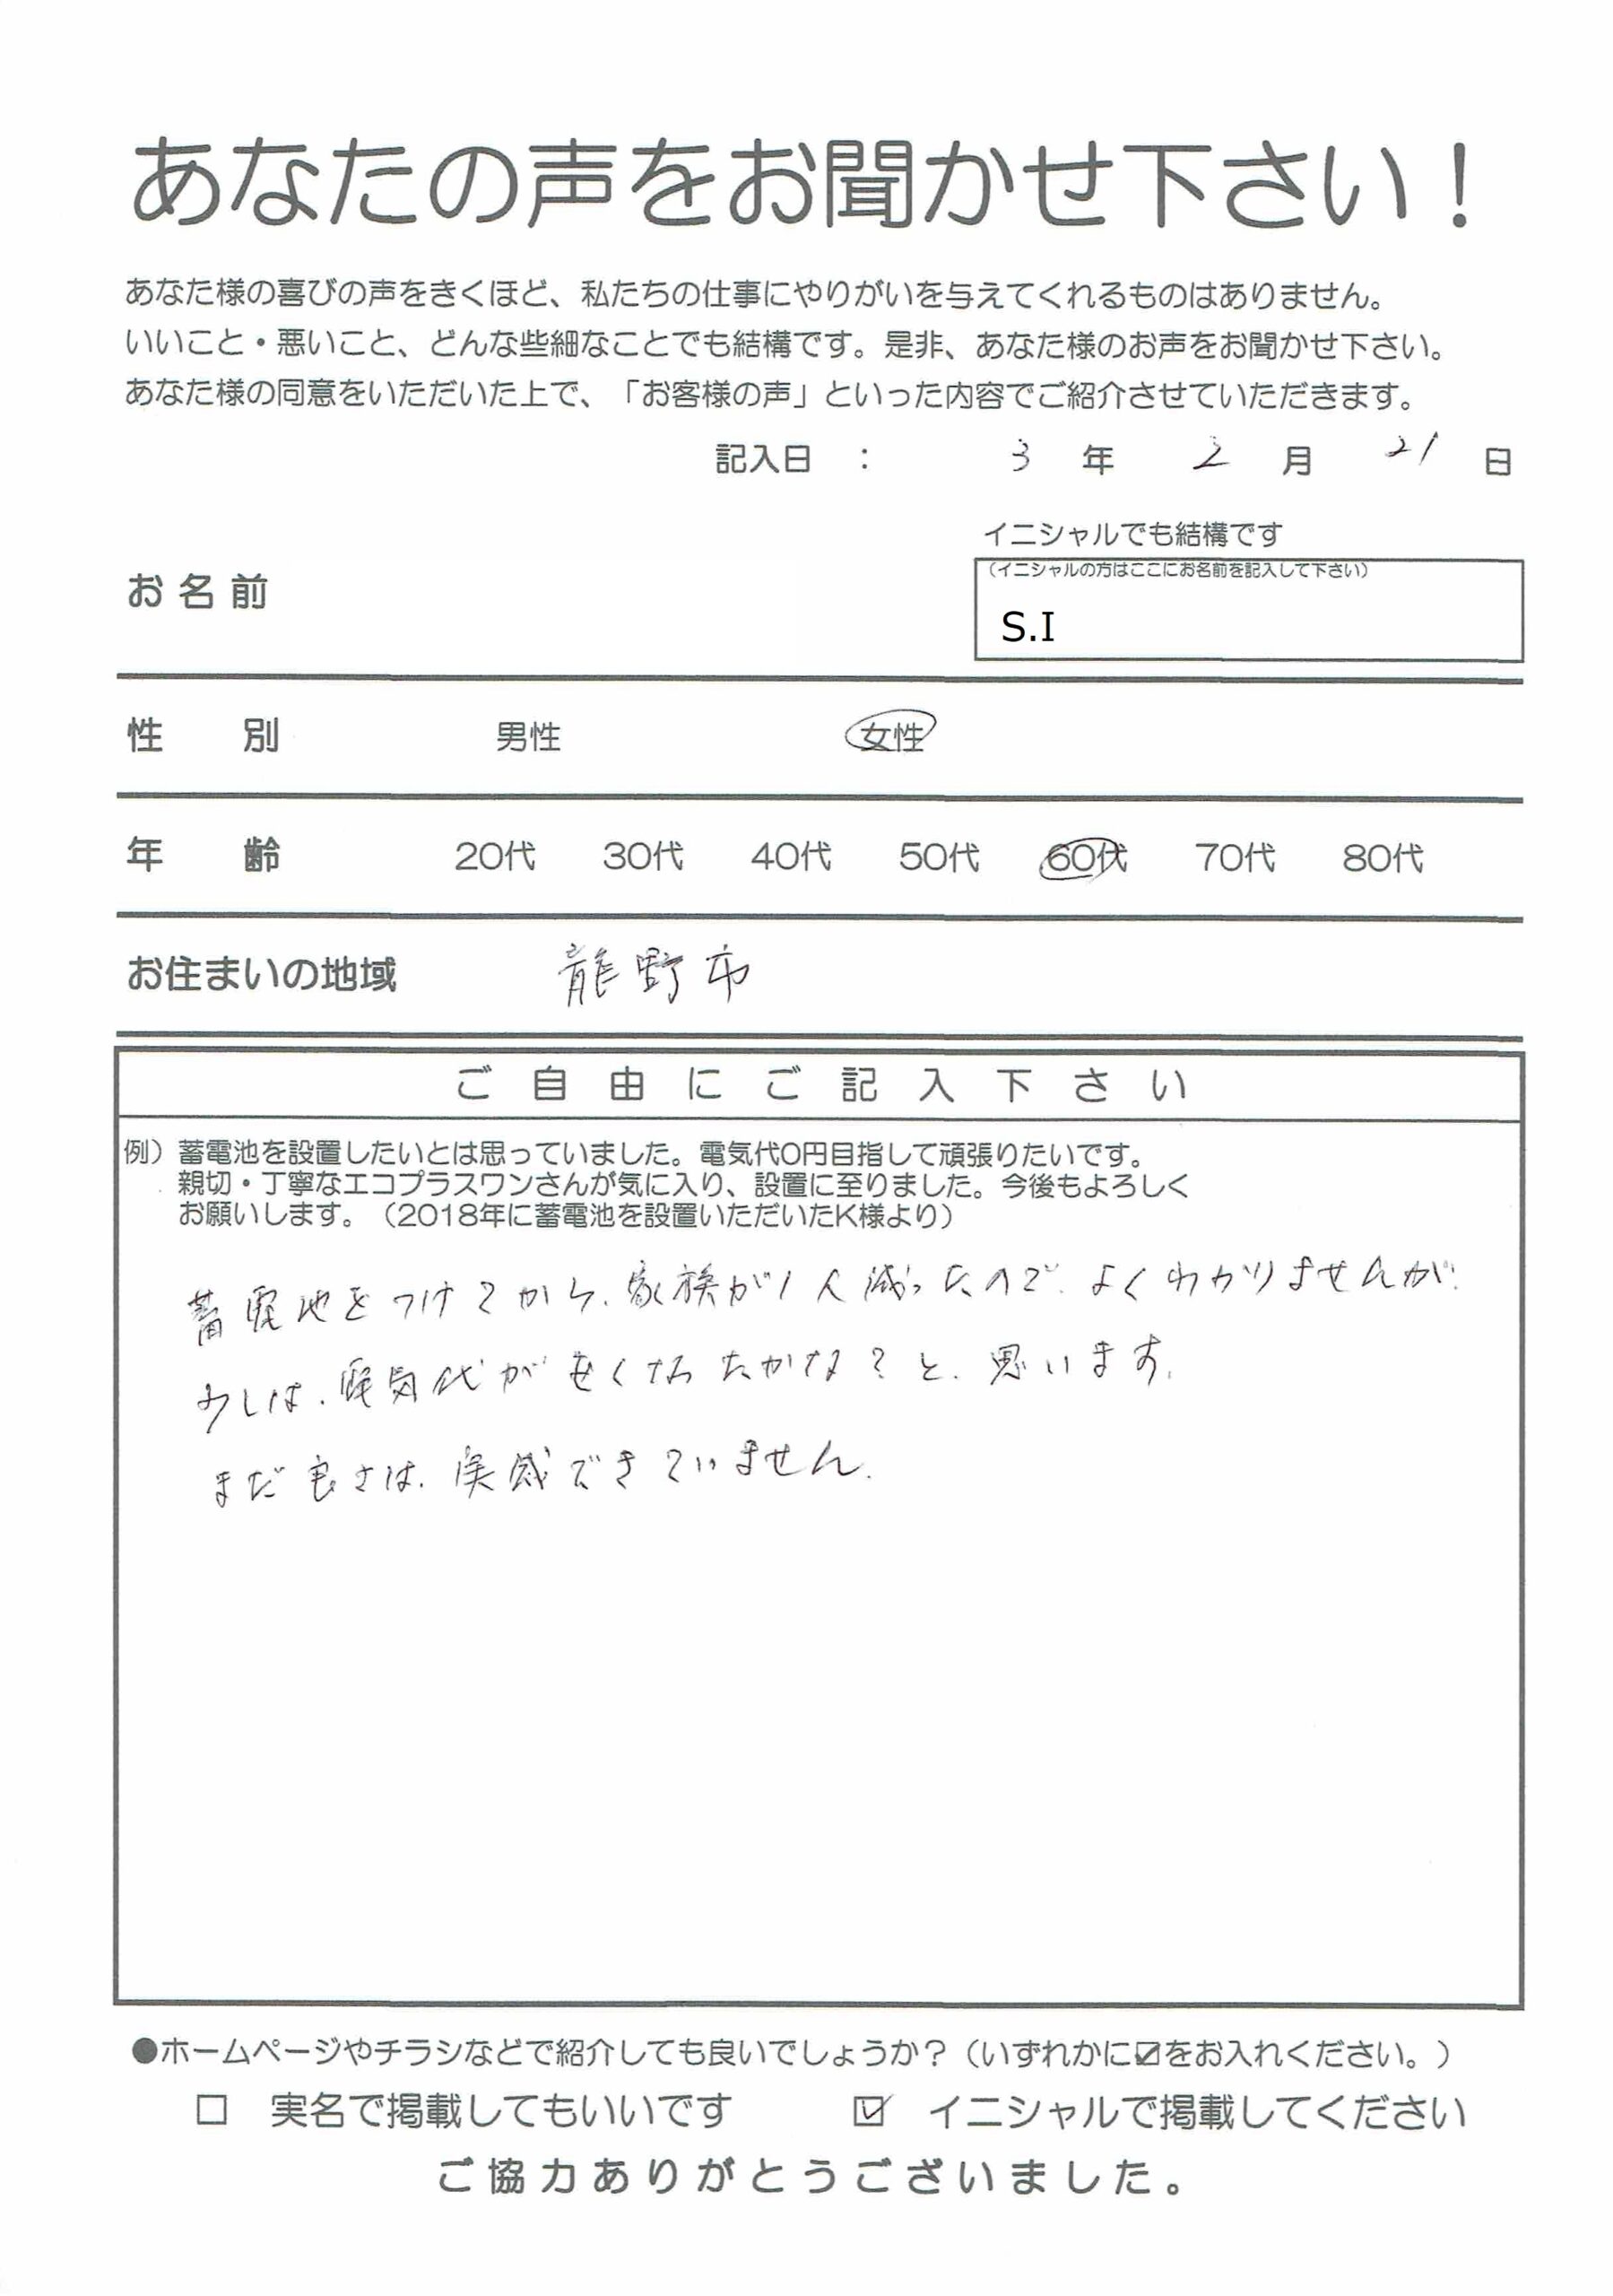 あなたの声をお聞かせ下さい！
あなた様の喜びの声をきくほど、私たちの仕事にやりがいを与えてくれるものはありません。
いいこと・悪いこと、どんな些細なことでも結構です。是非、あなた様のお声をお聞かせ下さい。
あなた様の同意をいただいた上で、「お客様の声」といった内容でご紹介させていただきます。
記入日 ： 3 年 2 月 21 日
イニシャルでも結構です
（イニシャルの方はここにお名前を記入して下さい）
お名前
S.I
性別 男性 女性
年齢 20代 30代 40代 50代 60代 70代 80代
お住まいの地域 龍野市
ご自由にご記入下さい
例）蓄電池を設置したいとは思っていました。電気代0円目指して頑張りたいです。
親切・丁寧なエコプラスワンさんが気に入り、設置に至りました。今後もよろしく
お願いします。（2018年に蓄電池を設置いただいたK様より）
蓄電池をつけてから、家族が1人減ったので、よくわかりませんが、
少しは、電気代が安くなったかな？と、思います。
まだ良さは、実感できていません。
●ホームページやチラシなどで紹介しても良いでしょうか？（いずれかに☑をお入れください。）
□ 実名で掲載してもいいです ☑ イニシャルで掲載してください
ご協力ありがとうございました。